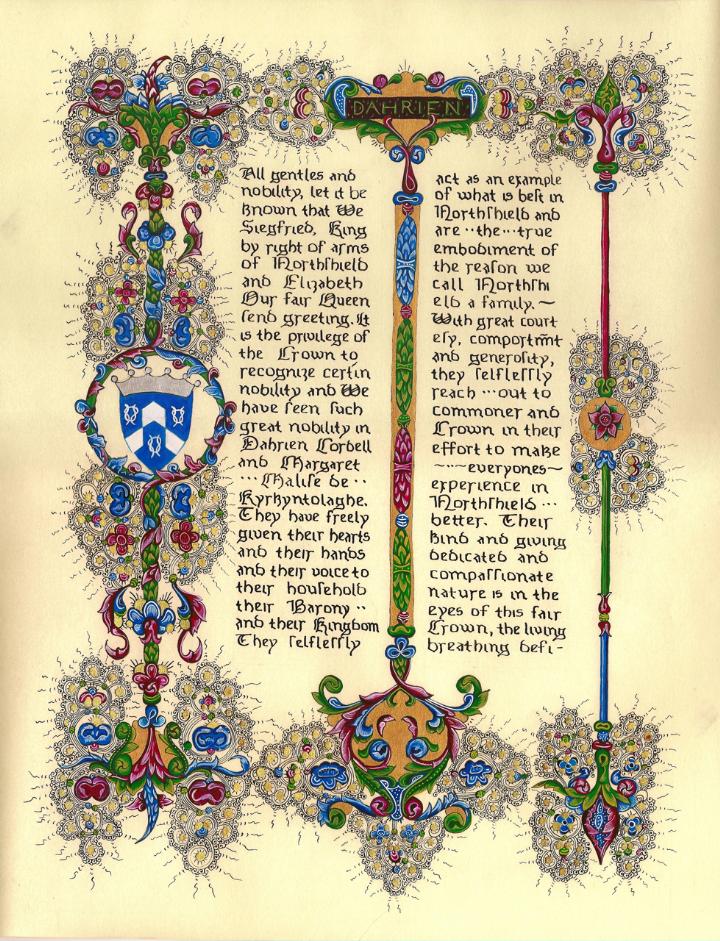 DAHRIEN
All gentles and
nobility, let it be
known that We
Siegfried, King
by right of arms
of Northſhield
and Elizabeth
Our fair Queen
ſend greeting. It
is the privilege of
the Crown to
recognize certin
nobility and We
have ſeen ſuch
great nobility in
Dahrien Cordell
and Margaret
··· Malise de ··
Kyrkyntolaghe.
They have freely
given their hearts
and their hands
and their voice to
their household
their Barony ··
and their Kingdom
They ſelfleſſly
act as an example
of what is beſt in
Northſhield and
are ·· the ··· true
embodiment of
the reaſon we
call Northſhi
eld a family. ~
With great court
eſy, comportm̄t
and generoſity,
they ſelfleſſly
reach ··· out to
commoner and
Crown in their
effort to make
~···everyones~
experience in
Northſhield ···
better. Their
kind and giving
dedicated and
compaſſionate
nature is in the
eyes of this fair
Crown, the living
breathing defi-